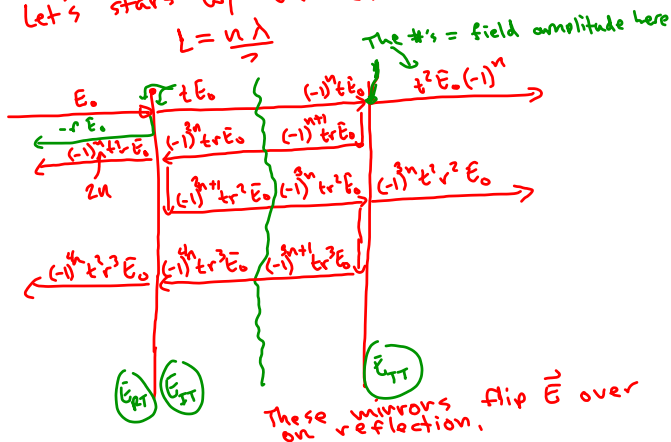 Let's start up
L = nλ/2
The #'s = field amplitude here
E₀
tE₀
(-1)ⁿtE₀
t²E₀(-1)ⁿ
-rE₀
(-1)²ⁿtrE₀
(-1)ⁿ⁺¹trE₀
(-1)ⁿt²rE₀
2n
(-1)²ⁿ⁺¹tr²E₀
(-1)³ⁿtr²E₀
(-1)³ⁿt²r²E₀
(-1)⁴ⁿt²r³E₀
(-1)⁴ⁿtr³E₀
(-1)³ⁿ⁺¹tr³E₀
E_RT
E_IT
E_TT
These mirrors flip E⃗ over
on reflection.